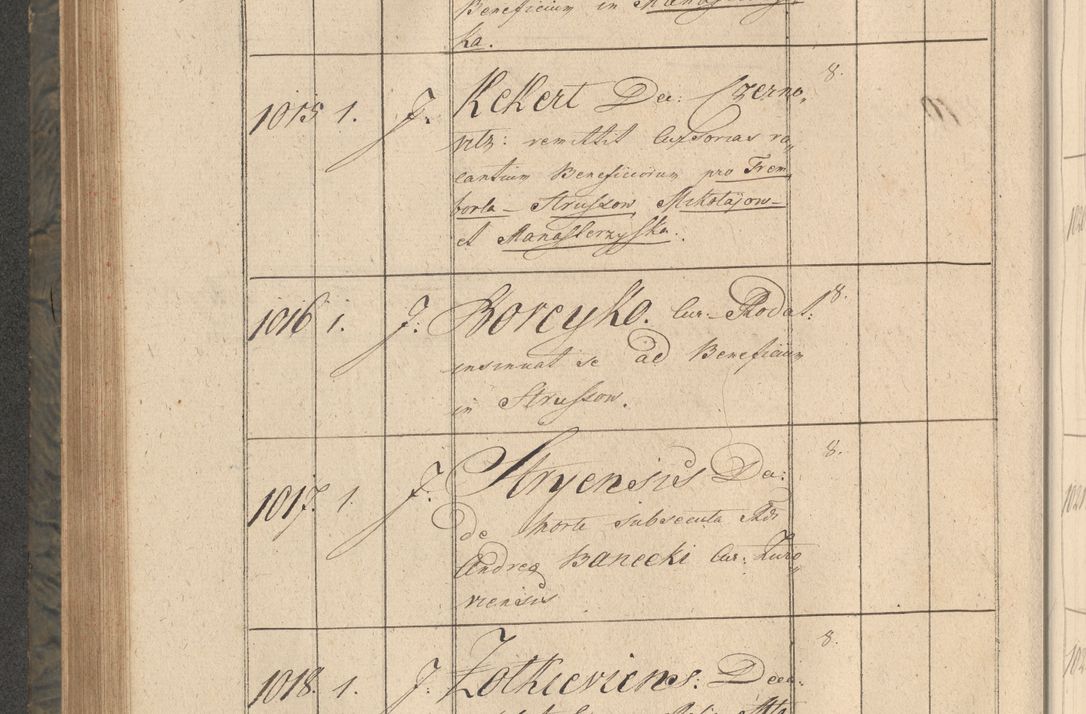 Beneficium in
ka.
8.
1015 1. J. Kekert Dec: Czerno„
vitz: remittit Cursorias va„
cantium Beneficiorum pro Trem„
borla – Strussow, Mikołajow –
et Manasterzyska.
1016 1. J. Borcyko. Cur – Podat: 8.
insinuat se ad Beneficium
in Strussow.
1017. 1. J. Stryensis Dec: 8.
de Morte subsecuta Rdi
Andrea Banecki Cur: Zura„
viensis
1018. 1. J. Żołkieviens: Deca: 8.